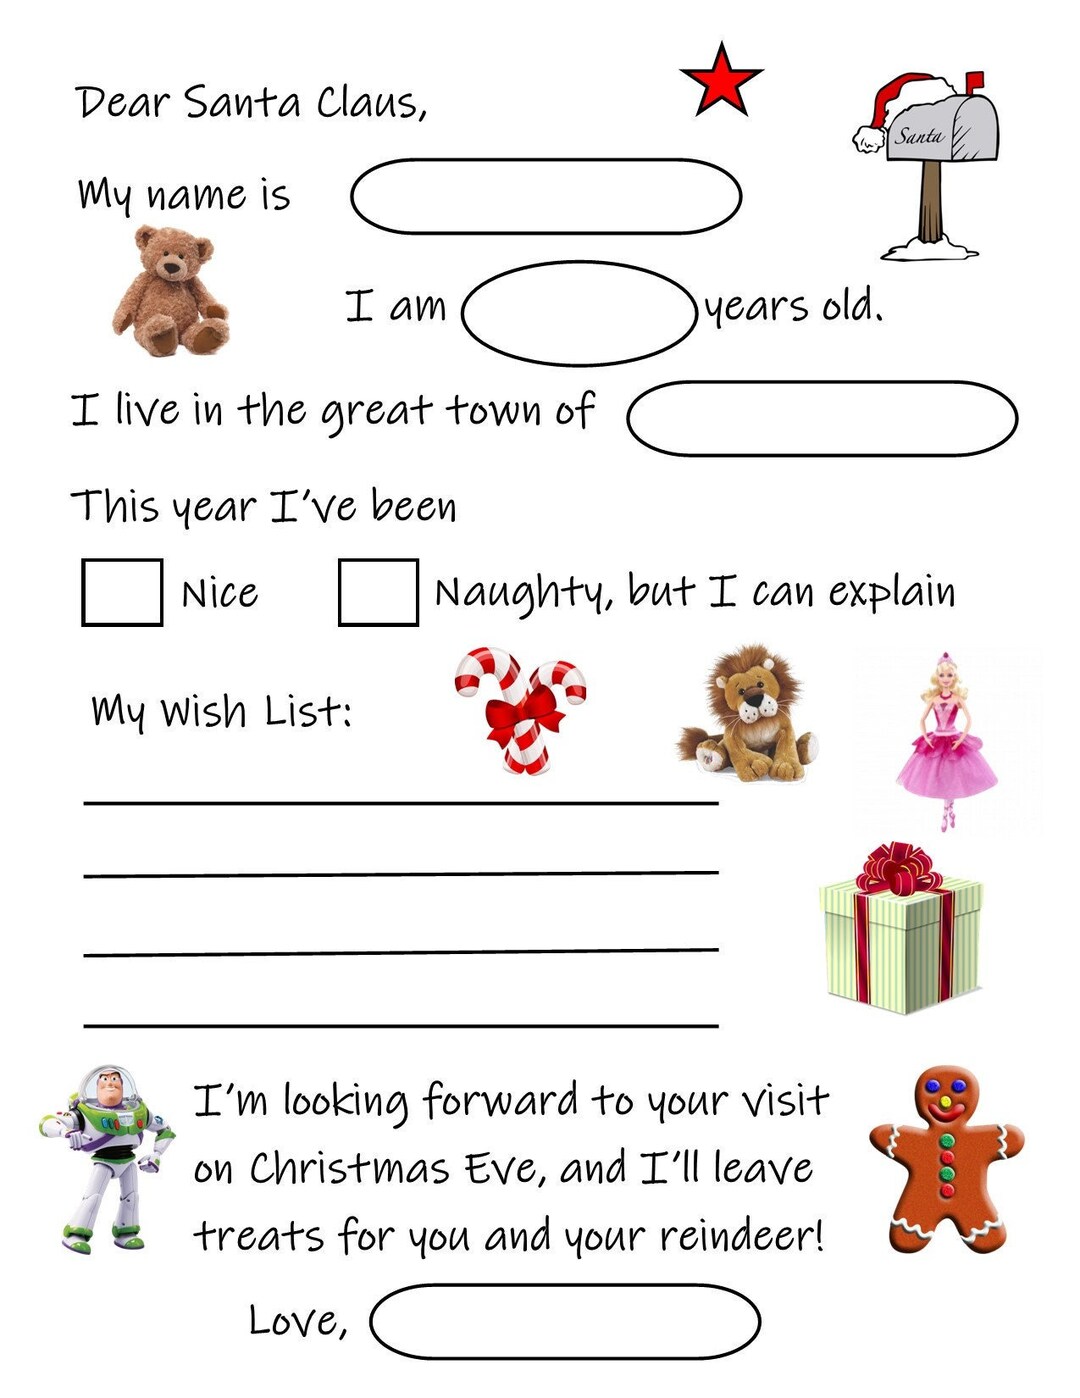 Dear Santa Claus,
Santa
My name is
I am years old.
I live in the great town of
This year I've been
Nice Naughty, but I can explain
My Wish List:
I'm looking forward to your visit
on Christmas Eve, and I'll leave
treats for you and your reindeer!
Love,